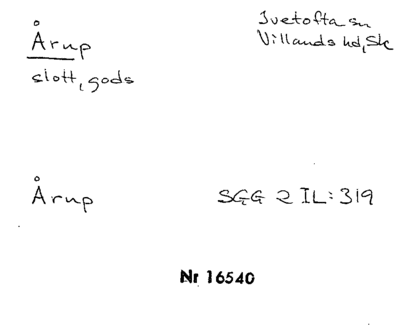 Årup
Ivetofta sn
Villands hd, Sk
slott, gods
Årup
SGG 2 IL: 319
Nr 16540